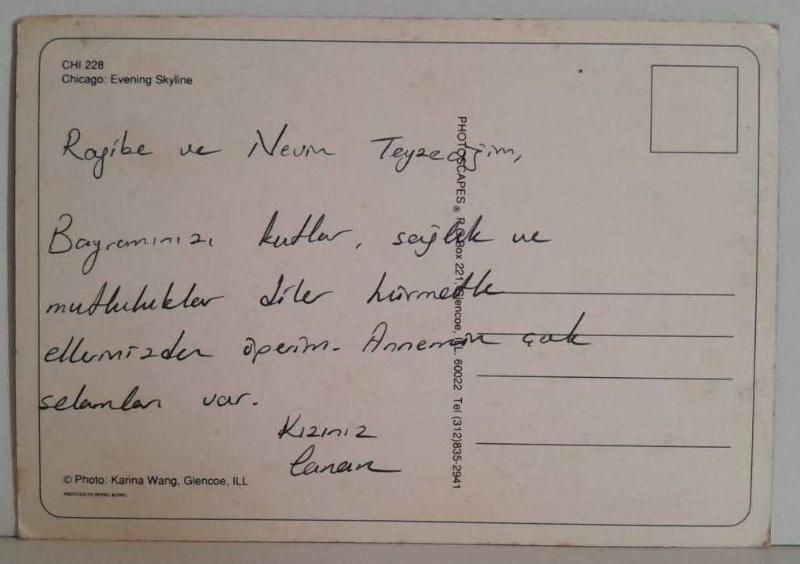 CHI 228
Chicago: Evening Skyline
Ragibe ve Nevin Teyzeciğim,
Bayramınızı kutlar, sağlık ve
mutluluklar diler hürmetle
ellerinizden öperim. Annemin çok
selamları var.
Kızınız
Canan
PHOTOSCAPES® P.O. Box 221, Glencoe, ILL. 60022 Tel (312)835-2941
© Photo: Karina Wang, Glencoe, ILL
PRINTED IN HONG KONG